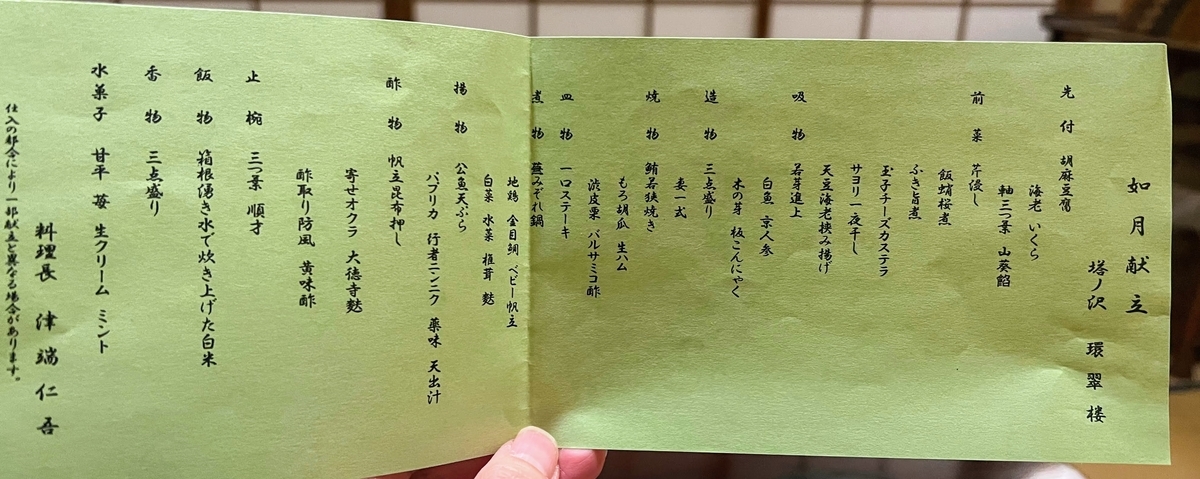 如月献立
塔ノ沢 環翠楼
先付 胡麻豆腐
海老 いくら
軸三つ葉 山葵餡
前菜 芹浸し
飯蛸桜煮
ふき旨煮
玉子チーズカステラ
サヨリ一夜干し
天豆海老挟み揚げ
吸物 若芽進上
白魚 京人参
木の芽 板こんにゃく
造物 三点盛り
妻一式
焼物 鰆若狭焼き
もろ胡瓜 生ハム
渋皮栗 バルサミコ酢
皿物 一口ステーキ
煮物 蕪みぞれ鍋
地鶏 金目鯛 ベビー帆立
白菜 水菜 椎茸 麩
揚物 公魚天ぷら
パプリカ 行者ニンニク 薬味 天出汁
酢物 帆立昆布押し
寄せオクラ 大徳寺麩
酢取り防風 黄味酢
止椀 三つ葉 順才
飯物 箱根湧き水で炊き上げた白米
香物 三点盛り
水菓子 甘平 苺 生クリーム ミント
料理長 津端仁吾
仕入の都合により一部献立と異なる場合があります。